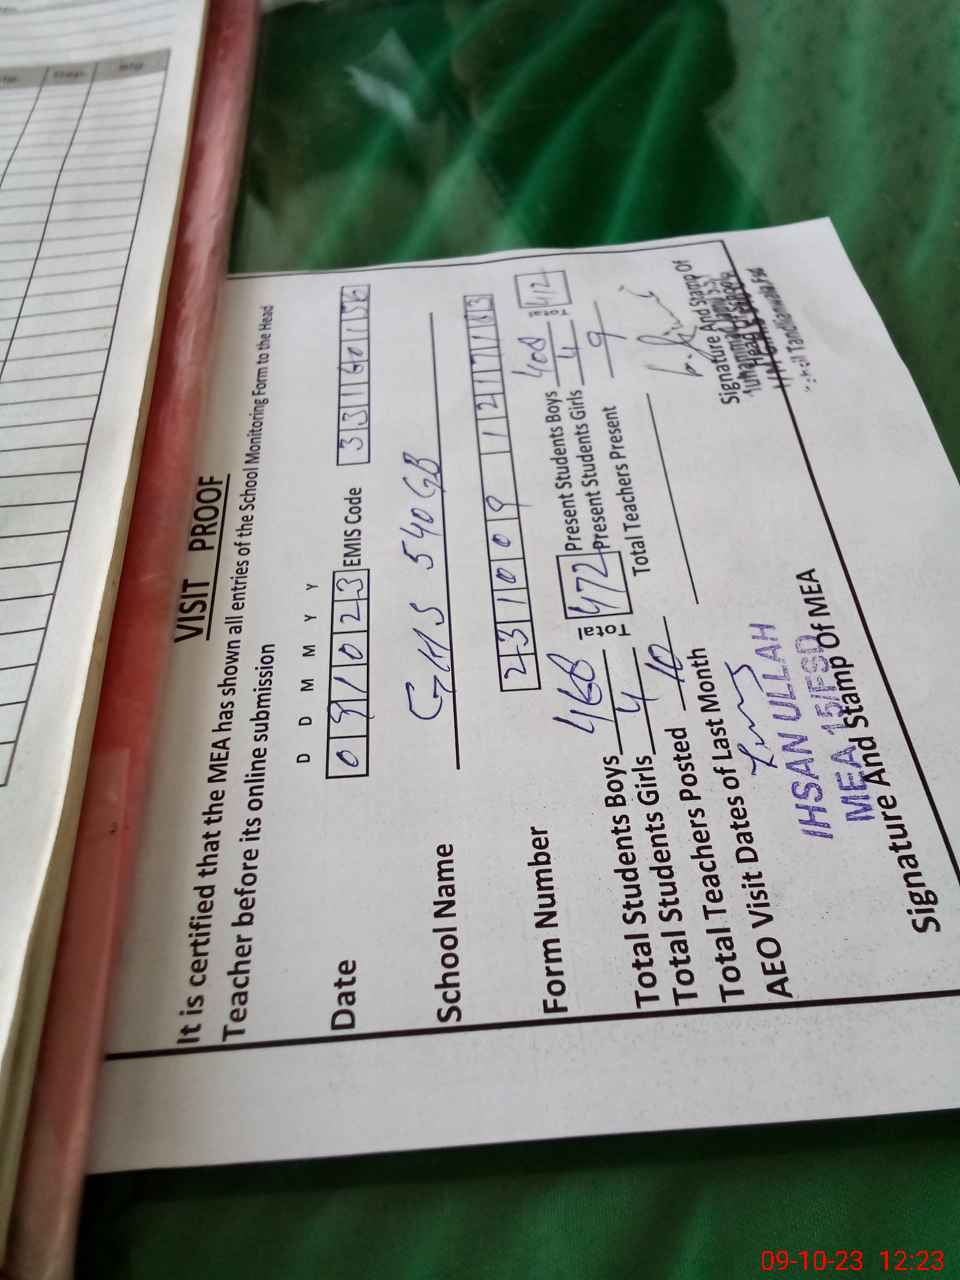 VISIT PROOF
It is certified that the MEA has shown all entries of the School Monitoring Form to the Head
Teacher before its online submission
D D M M Y Y
Date 091023 EMIS Code 33160156
School Name GHS 540 GB
Form Number 231009
Total Students Boys 468 Total 472 Present Students Boys 408 412
Total Students Girls 4 Present Students Girls 4
Total Teachers Posted 10 Total Teachers Present 9
Total Teachers of Last Month
AEO Visit Dates of Last Month
IHSAN ULLAH
MEA 15/FSD
Signature And Stamp Of MEA
Signature And Stamp Of
Head
09-10-23 12:23